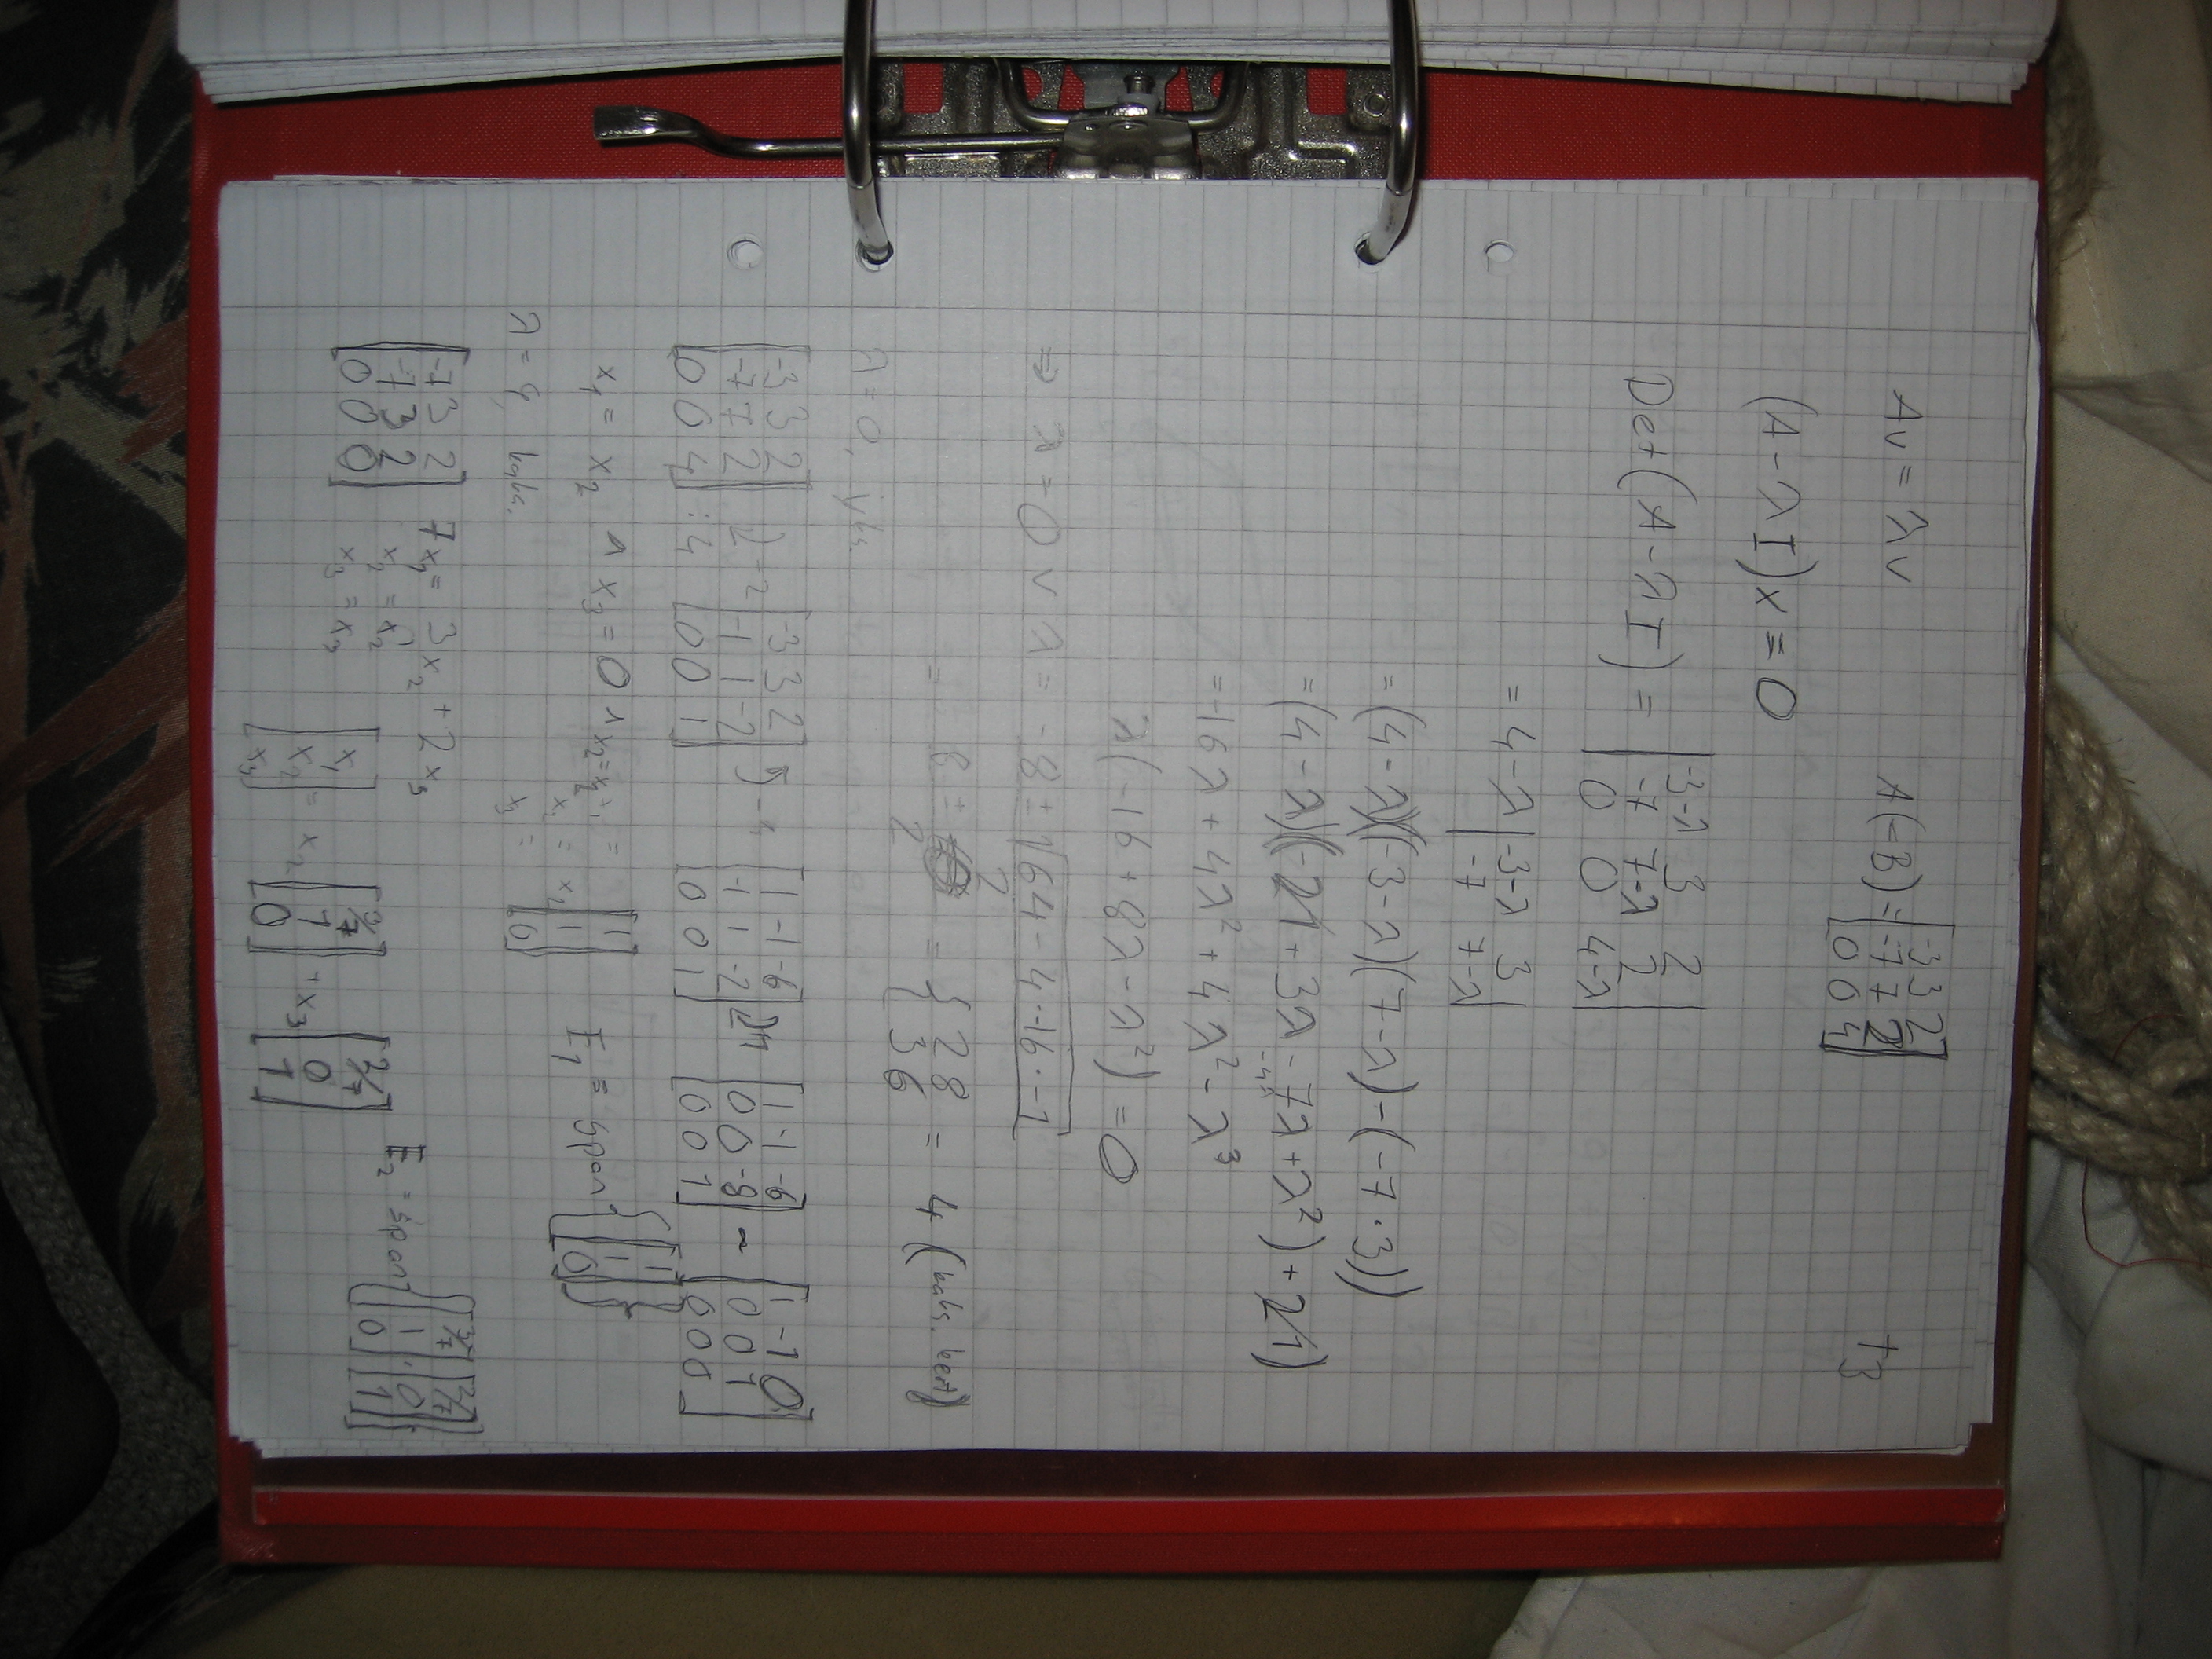 t3
Av = λv    A(=B) = [-3 3 2; -7 7 2; 0 0 4]
(A - λI)x = 0
Det(A - λI) = |-3-λ 3 2; -7 7-λ 2; 0 0 4-λ|
= 4-λ |-3-λ 3; -7 7-λ|
= (4-λ)((-3-λ)(7-λ)-(-7·3))
= (4-λ)((-21+3λ-7λ+λ²)+21)
-4λ
= -16λ + 4λ² + 4λ² - λ³
λ(-16+8λ-λ²) = 0
⇒ λ = 0 ∨ λ = -8 ± √64-4·-16·-1
2
= 8 ±
2
= { 28 36 = 4 (kahs. kert)
λ = 0, yks.
[-3 3 2; -7 7 2; 0 0 4] :4 [-3 3 2; -1 1 -2; 0 0 1] ~ [1 -1 -6; -1 1 -2; 0 0 1] [1 -1 -6; 0 0 -8; 0 0 1] ~ [1 -1 0; 0 0 1; 0 0 0]
x₁ = x₂ ∧ x₃ = 0 ∧ x₂ = x₂ [1; 1; 0] E₁ = span{[1; 1; 0]}
λ = 4, kahs.
[-7 3 2; -7 3 2; 0 0 0] 7x₁ = 3x₂ + 2x₃
x₂ = x₂
x₃ = x₃
[x₁; x₂; x₃] = x₂ [3/7; 1; 0] + x₃ [2/7; 0; 1] E₂ = span{[3/7; 1; 0], [2/7; 0; 1]}